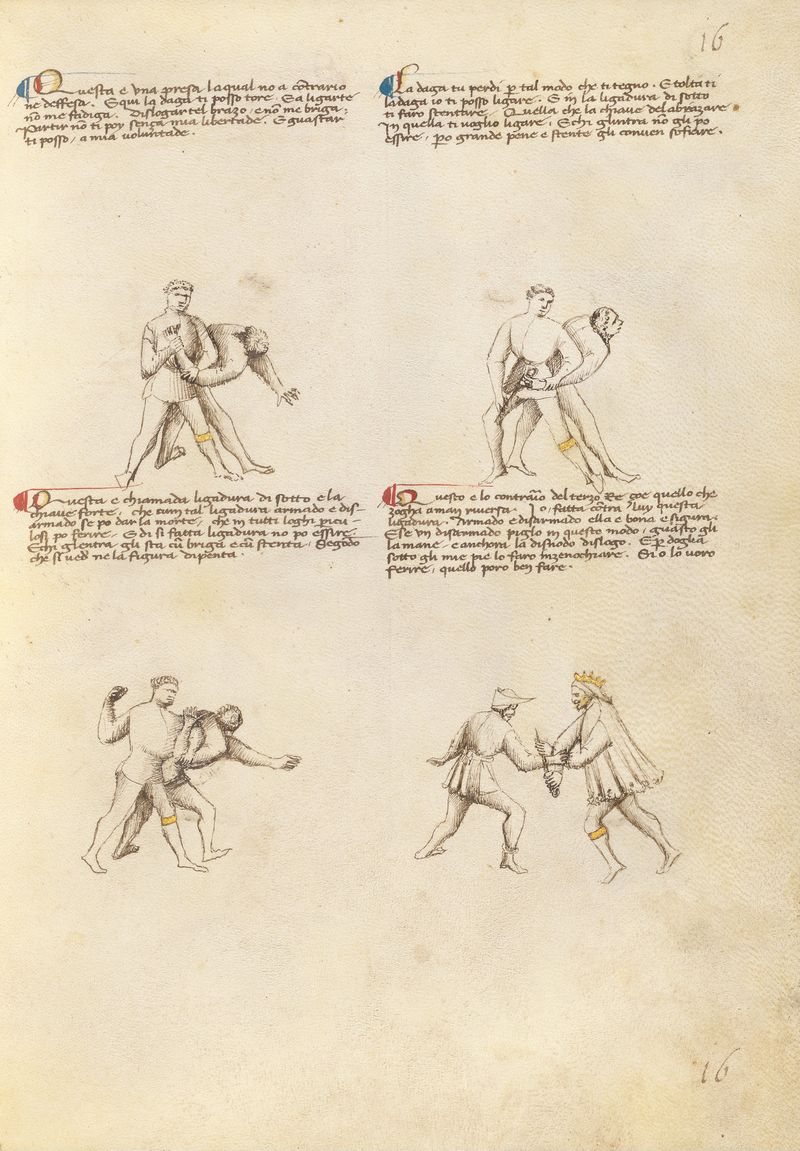 16
Questa e una presa la qual no a contrario
ne deffesa. E qui la daga ti posso tore. E a ligarte
non me fadiga. Dislogar tel brazo, e no me briga.
Partir no ti poy senza mia libertade. E guastar
ti posso, a mia voluntade.
La daga tu perdi p tal modo che ti tegno. E tolta ti
la daga io ti posso ligare. E in la ligadura di sotto
ti faro stentare. Quella che la chiave del abrazare
In quella ti voglio ligare. E chi gli intra no gli po
essire, p o grande pene e stente gli conven sofrire.
Questa e chiamada ligadura di sotto e la
chiave forte, che cum tal ligadura armado e dis-
armado se po dar la morte, che in tutti loghi pericu-
losi po ferire. E di si fatta ligadura no po essire.
E chi gl'entra gli sta cu briga e cu stenta. Segodo
che si ved ne la figura dipenta.
Questo e lo contrario del terzo Re çoe quello che
zogha a man riversa. Io o fatta contra luy questa
ligadura. Armado e disarmado ella e bona e sigura.
E se un disarmado piglio in questo modo, guasto gli
la mane, e anchora la disnodo dislogo. E p doglia
sotto gli mie pie lo faro inzenochiare. Si o lo voro
ferire, quello poro ben fare.
16